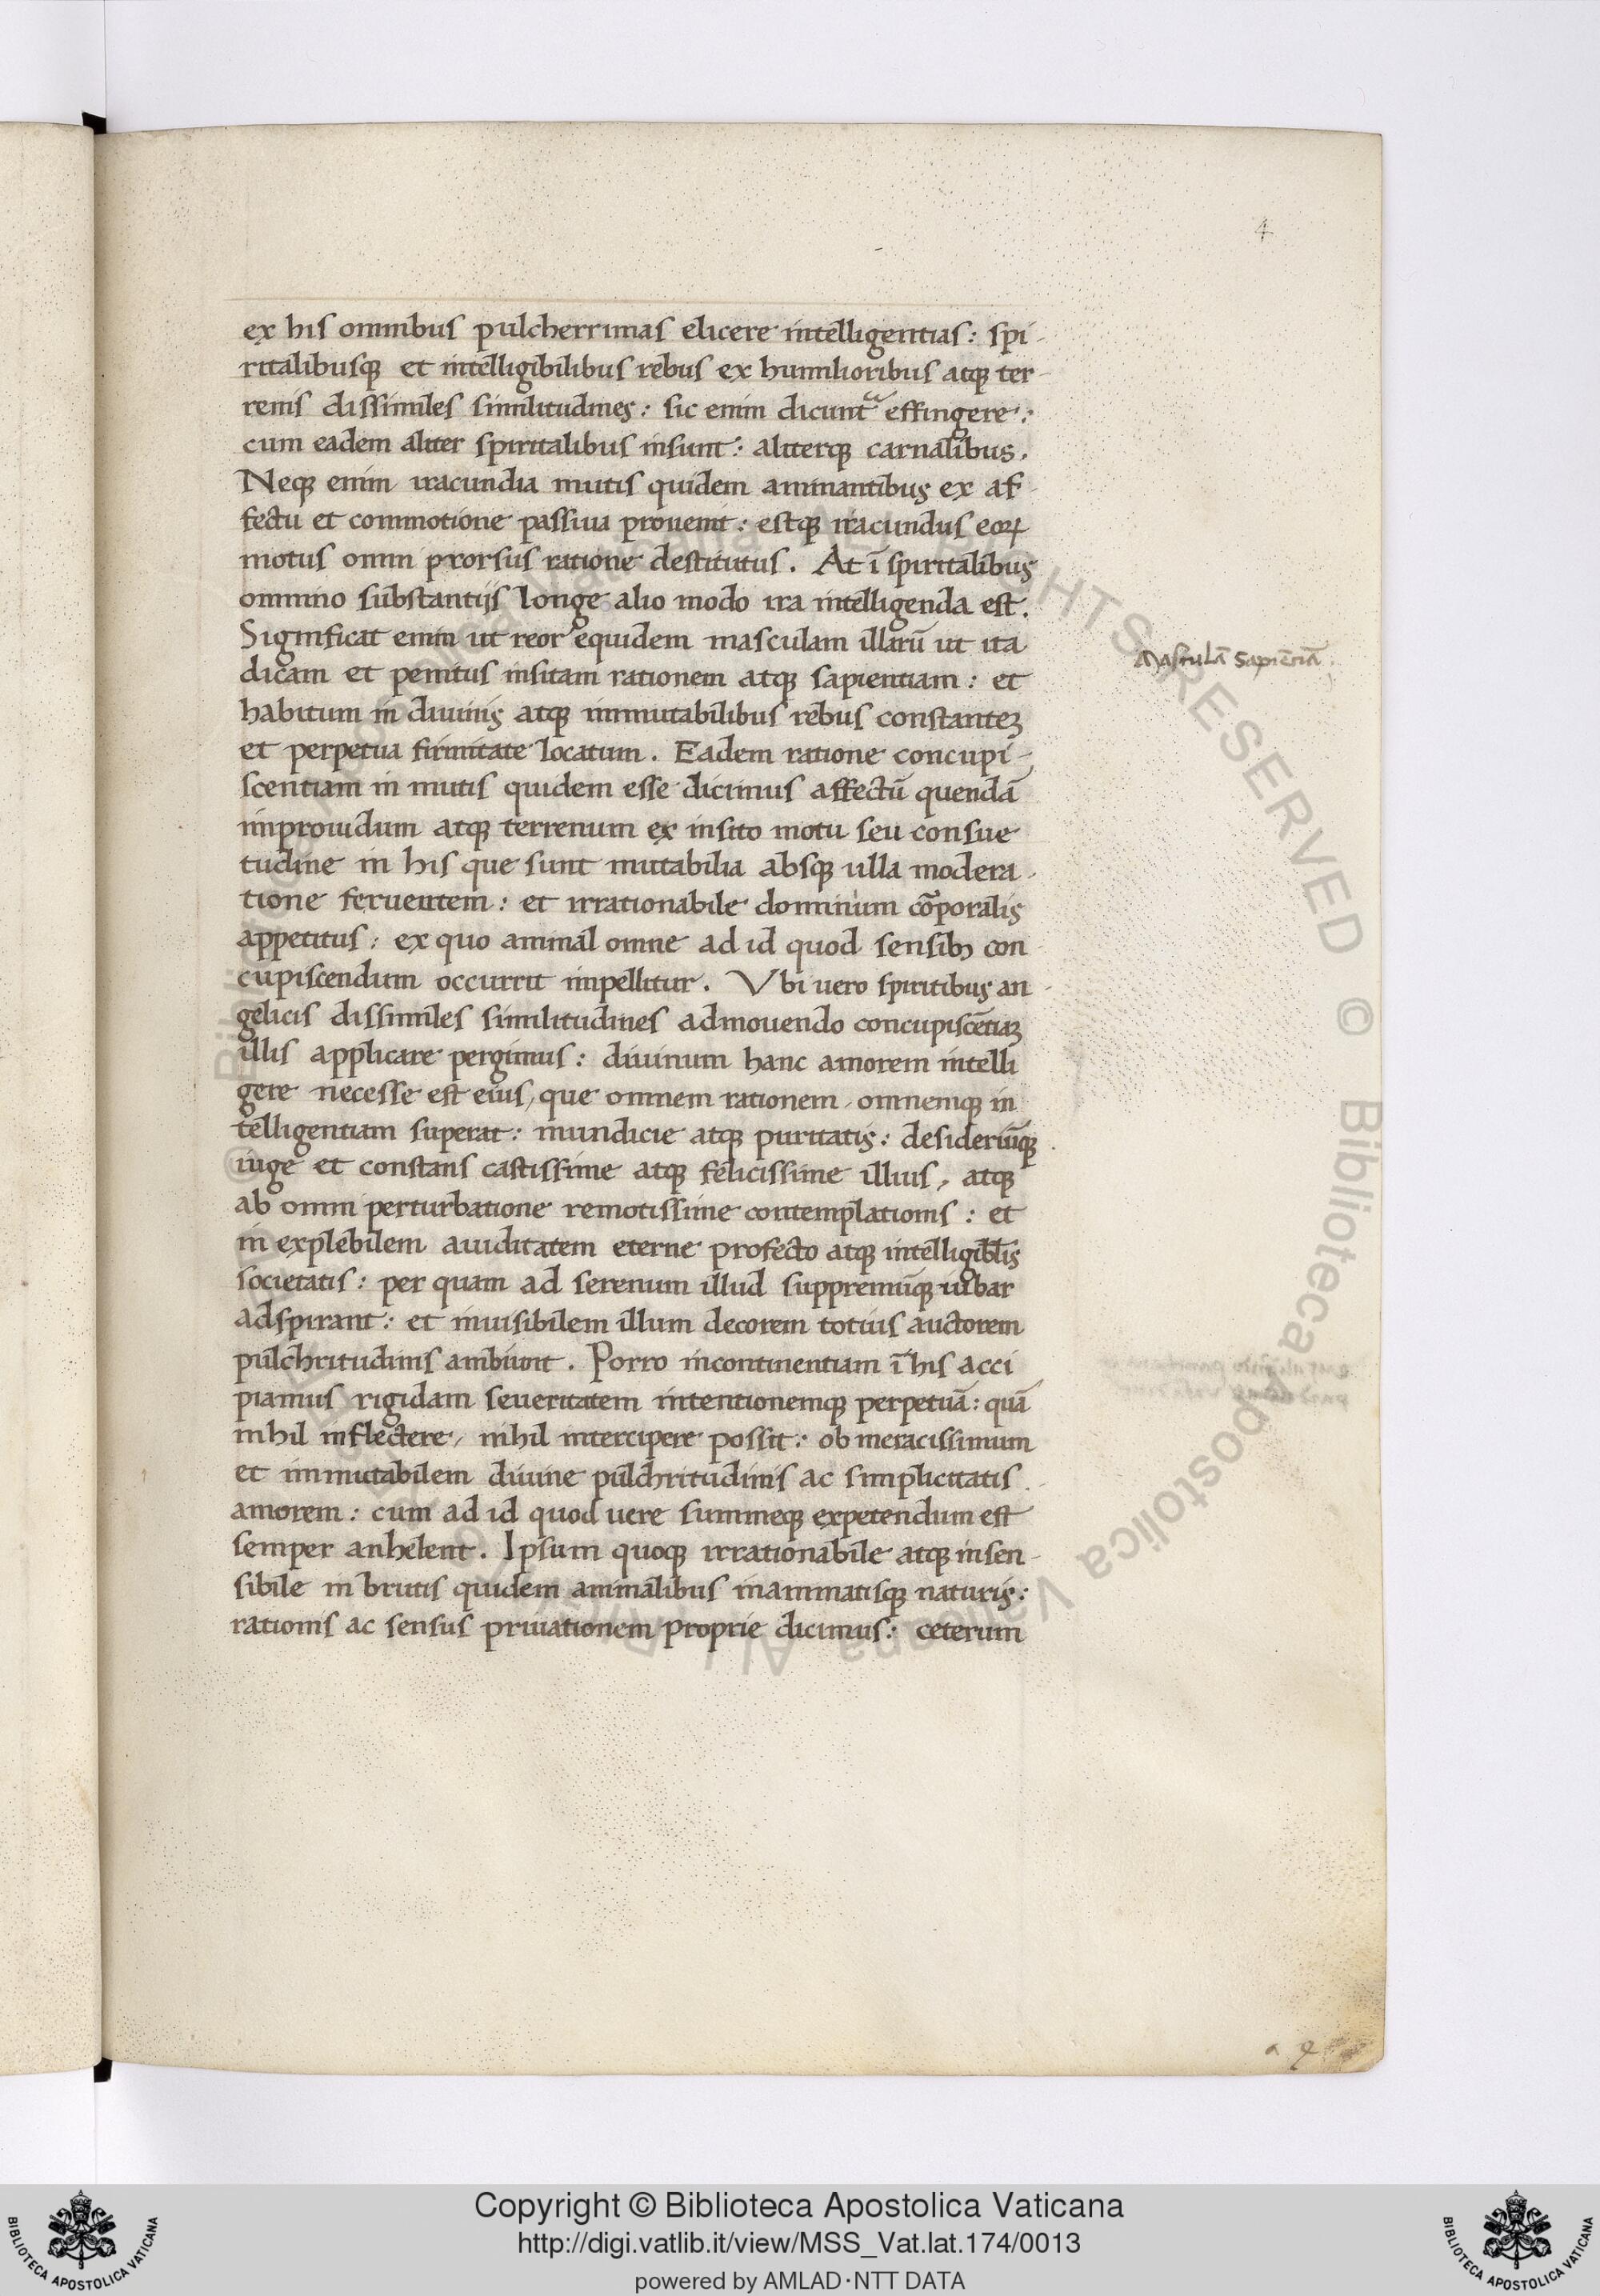 4
ex his omnibus pulcherrimas elicere intelligentias: spi-
ritalibusq; et intelligibilibus rebus ex humilioribus atq; ter-
renis dissimiles similitudines: sic enim dicunt effingere:
cum eadem aliter spiritalibus insunt: aliterq; carnalibus.
Neq; enim iracundia mutis quidem animantibus ex af-
fectu et commotione passiua prouenit: estq; iracundus eoꝝ
motus omni prorsus ratione destitutus. At ī spiritalibus
omnino substantijs longe alio modo ira intelligenda est.
Significat enim ut reor equidem masculam illarū ut ita
Masculā sapiētiā
dicam et penitus insitam rationem atq; sapientiam: et
habitum in diuinis atq; immutabilibus rebus constanteꝫ
et perpetua firmitate locatum. Eadem ratione concupi-
scentiam in mutis quidem esse dicimus affectū quendā
improuidum atq; terrenum ex insito motu seu consue
tudine in his que sunt mutabilia absq; ulla modera-
tione feruentem: et irrationabile dominium corporalis
appetitus: ex quo animal omne ad id quod sensibꝫ con
cupiscendum occurrit impellitur. Vbi uero spiritibus an-
gelicis dissimiles similitudines admouendo concupiscētiaꝫ
illis applicare pergimus: diuinum hanc amorem intelli
gere necesse est eius, que omnem rationem, omnemq; in
telligentiam superat: mundicie atq; puritatis: desideriūq;
iuge et constans castissime atq; felicissime illius, atq;
ab omni perturbatione remotissime contemplationis: et
in explebilem auiditatem eterne profecto atq; intelligibl̄is
societatis: per quam ad serenum illud suppremūq; iubar
adspirant: et inuisibilem illum decorem totius auctorem
pulchritudinis ambiunt. Porro incontinentiam ī his acci
piamus rigidam seueritatem intentionemq; perpetuā: quā
nihil inflectere, nihil intercipere possit: ob meracissimum
et immutabilem diuine pulchritudinis ac simplicitatis
amorem: cum ad id quod uere summeq; expetendum est
semper anhelent. Ipsum quoq; irrationabile atq; insen-
sibile in brutis quidem animalibus inammatisq; naturis:
rationis ac sensus priuationem proprie dicimus: ceterum
© Biblioteca Apostolica Vaticana ALL RIGHTS RESERVED
Copyright © Biblioteca Apostolica Vaticana
http://digi.vatlib.it/view/MSS_Vat.lat.174/0013
powered by AMLAD·NTT DATA
BIBLIOTECA APOSTOLICA VATICANA
BIBLIOTECA APOSTOLICA VATICANA